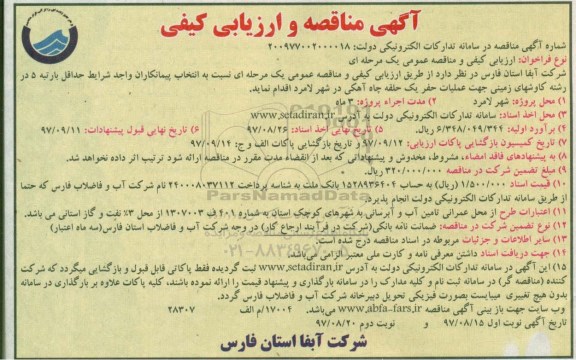 آگهی مناقصه و ارزیابی کیفی
شماره آگهی مناقصه در سامانه تدارکات الکترونیکی دولت: ۲۰۰۹۷۷۰۰۲۰۰۰۰۱۸
نوع فراخوان: ارزیابی کیفی و مناقصه عمومی یک مرحله ای
شرکت آبفا استان فارس در نظر دارد از طریق ارزیابی کیفی و مناقصه عمومی یک مرحله ای نسبت به انتخاب پیمانکاران واجد شرایط حداقل بارتبه ۵ در
رشته کاوشهای زمینی جهت عملیات حفر یک حلقه چاه آهکی در شهر لامرد اقدام نماید.
۱) محل پروژه: شهر لامرد ۲) مدت اجراء پروژه: ۳ ماه
۳) محل اخذ اسناد: سامانه تدارکات الکترونیکی دولت به آدرس www.setadiran.ir
۴) برآورد اولیه: ۶/۳۴۸/۰۴۹/۳۴۴ ریال. ۵) تاریخ نهایی اخذ اسناد: ۹۷/۰۸/۲۶ ۶) تاریخ نهایی قبول پیشنهادات: ۹۷/۰۹/۱۱
۷) تاریخ کمیسیون بازگشایی پاکات ارزیابی: ۹۷/۰۹/۱۲ و تاریخ بازگشایی پاکات الف و ج: ۹۷/۰۹/۱۴
۸) به پیشنهادهای فاقد امضاء، مشروط، مخدوش و پیشنهاداتی که بعد از انقضاء مدت مقرر در مناقصه ارائه شود ترتیب اثر داده نخواهد شد.
۹) مبلغ تضمین شرکت در مناقصه ۳۲۰/۰۰۰/۰۰۰ ریال.
۱۰) قیمت اسناد ۱/۵۰۰/۰۰۰ (ریال) به حساب ۱۵۲۸۹۳۶۴۰۴ بانک ملت به شناسه پرداخت ۲۴۰۰۰۸۰۳۷۱۱۲ نام شرکت آب و فاضلاب فارس که حتما
از طریق سامانه تدارکات الکترونیکی دولت انجام پذیرد.
۱۱) اعتبارات طرح از محل عمرانی تامین آب و آبرسانی به شهرهای کوچک استان به شماره ۴۰۱ ف ۱۳۰۷۰۰۳ از محل ۳٪ نفت و گاز استانی می باشد.
۱۲) نوع تضمین شرکت در مناقصه: ضمانت نامه بانکی(شرکت در فرآیند ارجاع کار) در وجه شرکت آب و فاضلاب استان فارس(سه ماه اعتبار)
۱۳) سایر اطلاعات و جزئیات مربوطه در اسناد مناقصه درج شده است.
۱۴) جهت دریافت اسناد داشتن معرفی نامه و کارت ملی معتبر الزامی می باشد.
۱۵) این آگهی در سامانه تدارکات الکترونیکی دولت به آدرس www.setadiran.ir ثبت گردیده فقط پاکاتی قابل قبول و بازگشایی میگردد که شرکت
کننده (مناقصه گر) در سامانه ثبت نام و کلیه مدارک را در سامانه بارگذاری و پیشنهاد قیمت را ارائه نموده باشند، کلیه پاکات علاوه بر بارگذاری در سامانه
بدون هیچ تغییری میبایست بصورت فیزیکی تحویل دبیرخانه شرکت آب و فاضلاب فارس گردد.
وب سایت جهت باز بینی آگهی مناقصه www.abfa-fars.ir میباشد. ۱۷۰۰۴/م الف ۲۸۳۰۷
تاریخ آگهی نوبت اول ۹۷/۰۸/۱۵ و نوبت دوم ۹۷/۰۸/۲۰
شرکت آبفا استان فارس
ParsNamadData
۰۲۱-۸۸۳۴۹۶۷۰